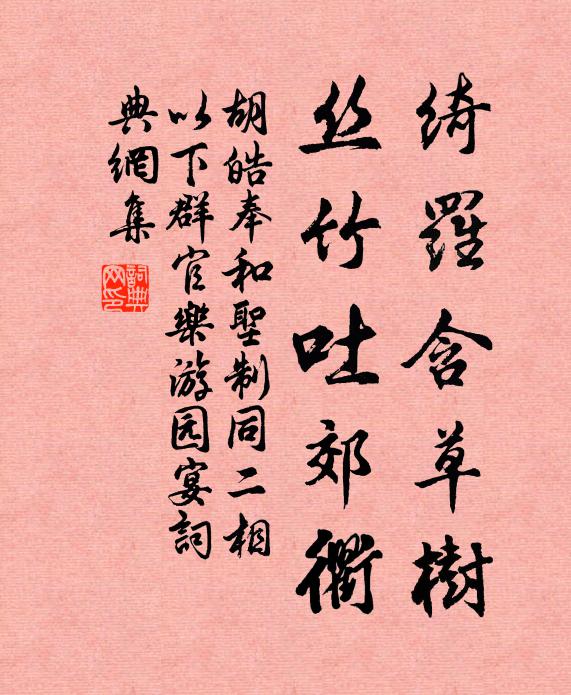 绮羅含草樹
丝竹吐郊衢
胡皓奉和聖制同二相
以下群官樂游园宴詞
典網集
詞典网印